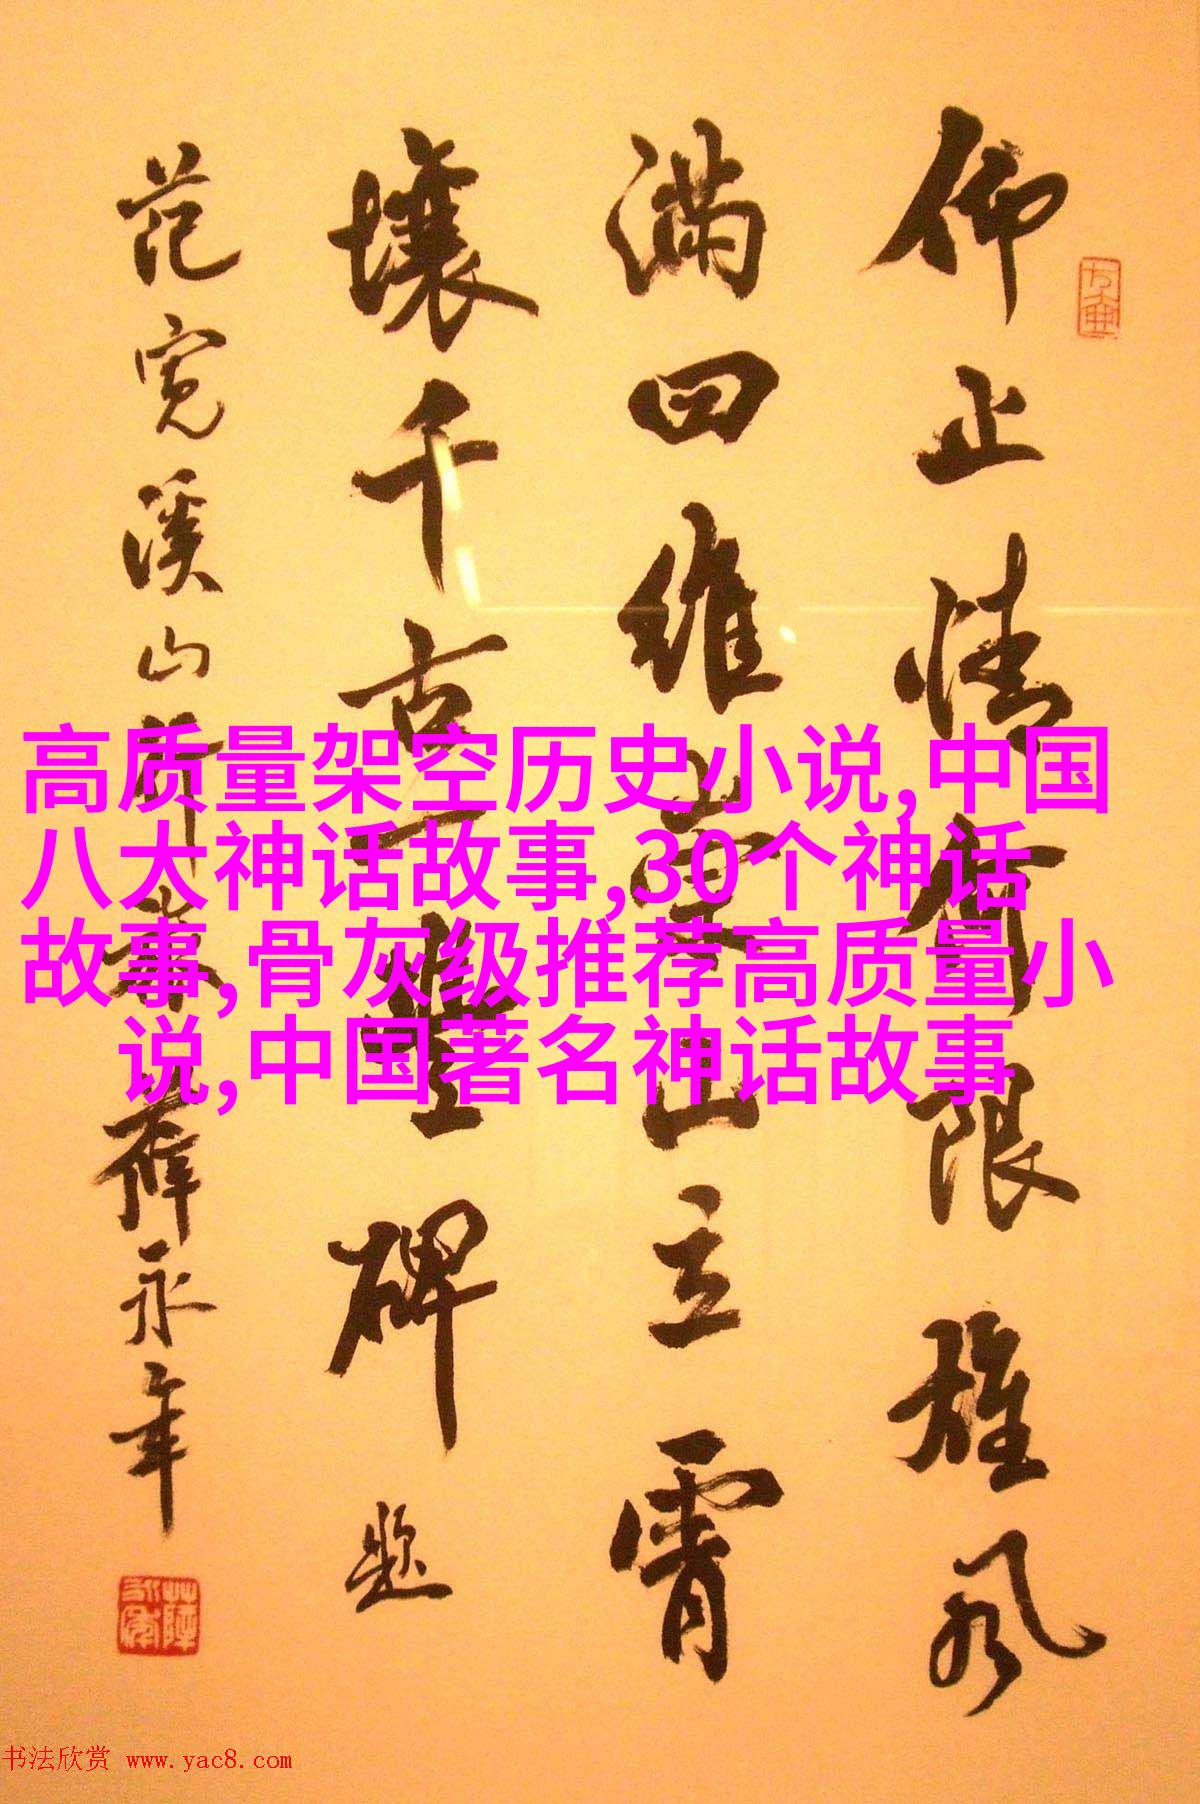 仰止情何限雄风
满四维崇山立霄
壤千古一豐碑 题
范宽溪山行旅 薛永年
高质量架空历史小说,中国
八大神话故事,30个神话
故事,骨灰级推荐高质量小
说,中国著名神话故事
书法欣赏 www.yac8.com